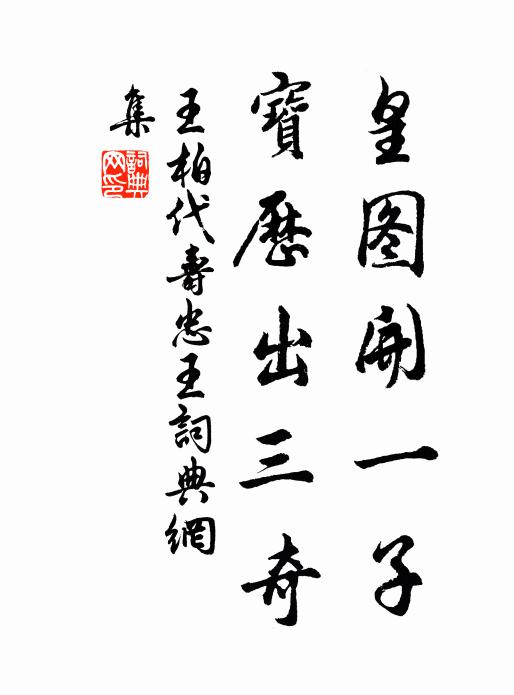 皇图開一子
寶曆出三奇
王柏代壽忠王詞典網
集
詞典
网印